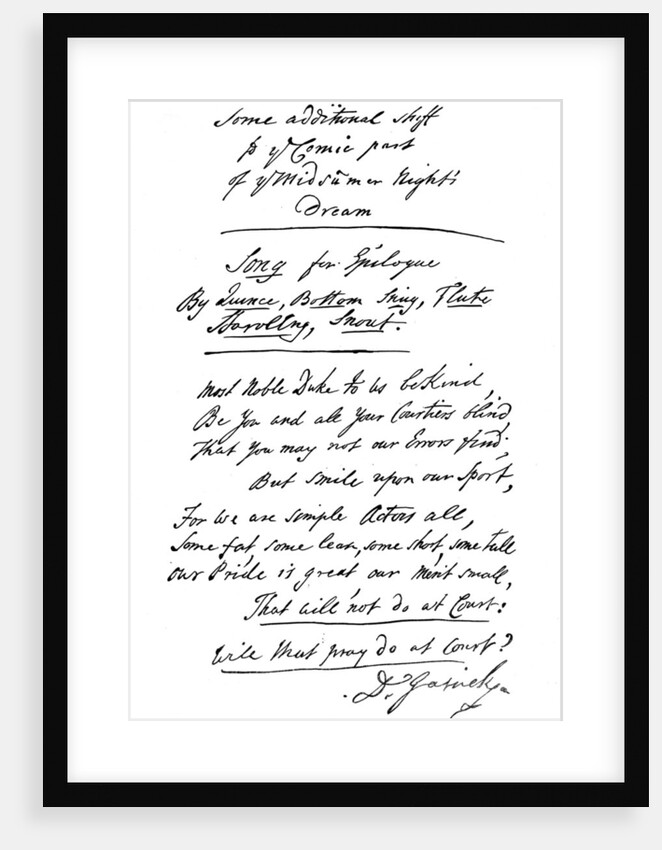 Some additional stuff
for yᵉ Comic part
of yᵉ Midsūmer Night's
Dream
Song for Epilogue
By Quince, Bottom Snug, Flute
Starvling, Snout.
Most Noble Duke to us be Kind,
Be You and all Your Courtiers blind,
That You may not our Errors find;
But smile upon our Sport,
For we are simple Actors all,
Some fat, some lean, some short, some tall
our Pride is great our Merit small,
That will not do at Court:
Will that pray do at Court?
D. Garrick